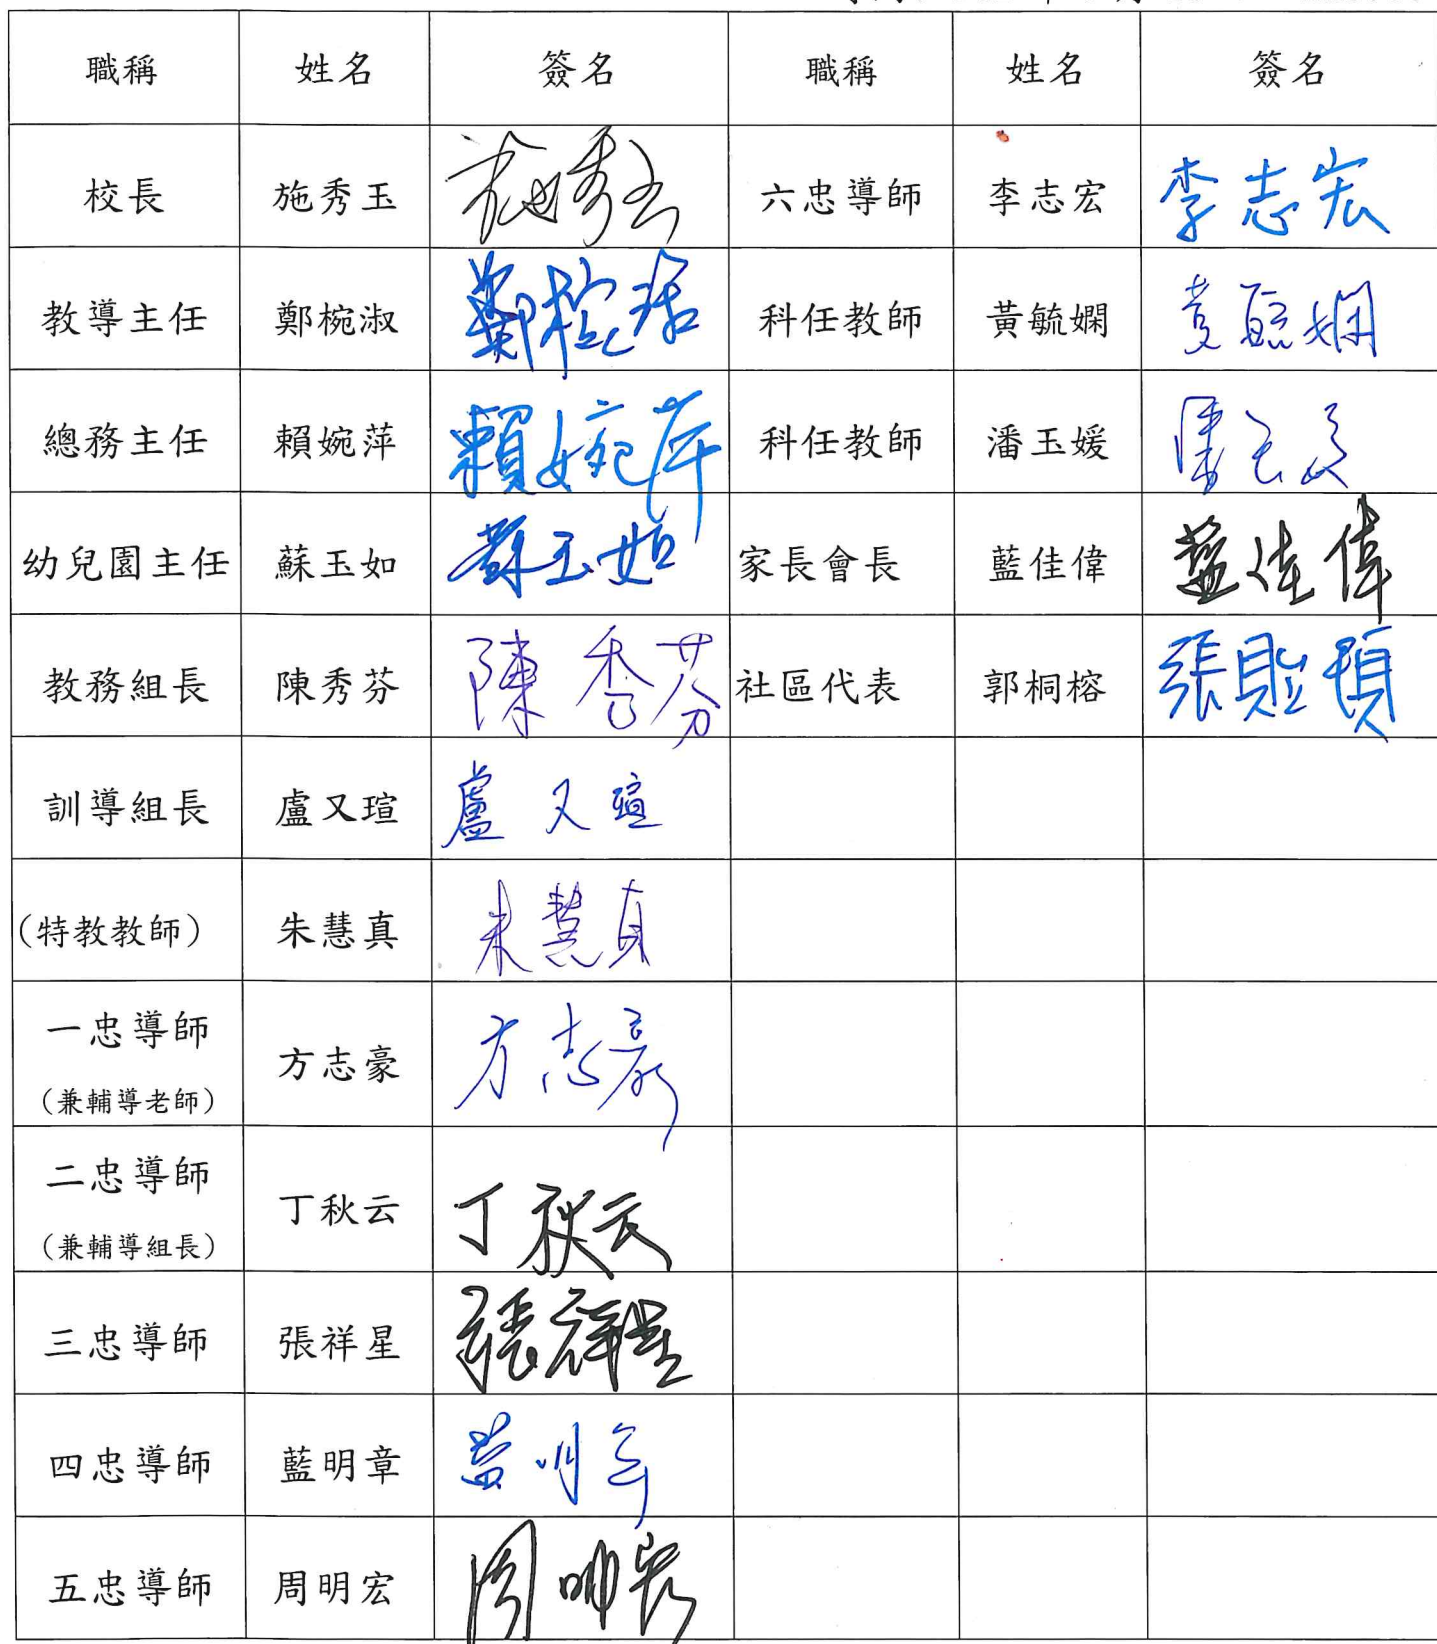 職稱 姓名 簽名 職稱 姓名 簽名
校長 施秀玉 施秀玉 六忠導師 李志宏 李志宏
教導主任 鄭椀淑 鄭椀淑 科任教師 黃毓嫻 黃毓嫻
總務主任 賴婉萍 賴婉萍 科任教師 潘玉媛 潘玉媛
幼兒園主任 蘇玉如 蘇玉如 家長會長 藍佳偉 藍佳偉
教務組長 陳秀芬 陳秀芬 社區代表 郭桐榕 張
訓導組長 盧又瑄 盧又瑄
(特教教師) 朱慧真 朱慧真
一忠導師
(兼輔導老師) 方志豪 方志豪
二忠導師
(兼輔導組長) 丁秋云 丁秋云
三忠導師 張祥星 張祥星
四忠導師 藍明章 藍明章
五忠導師 周明宏 周明宏